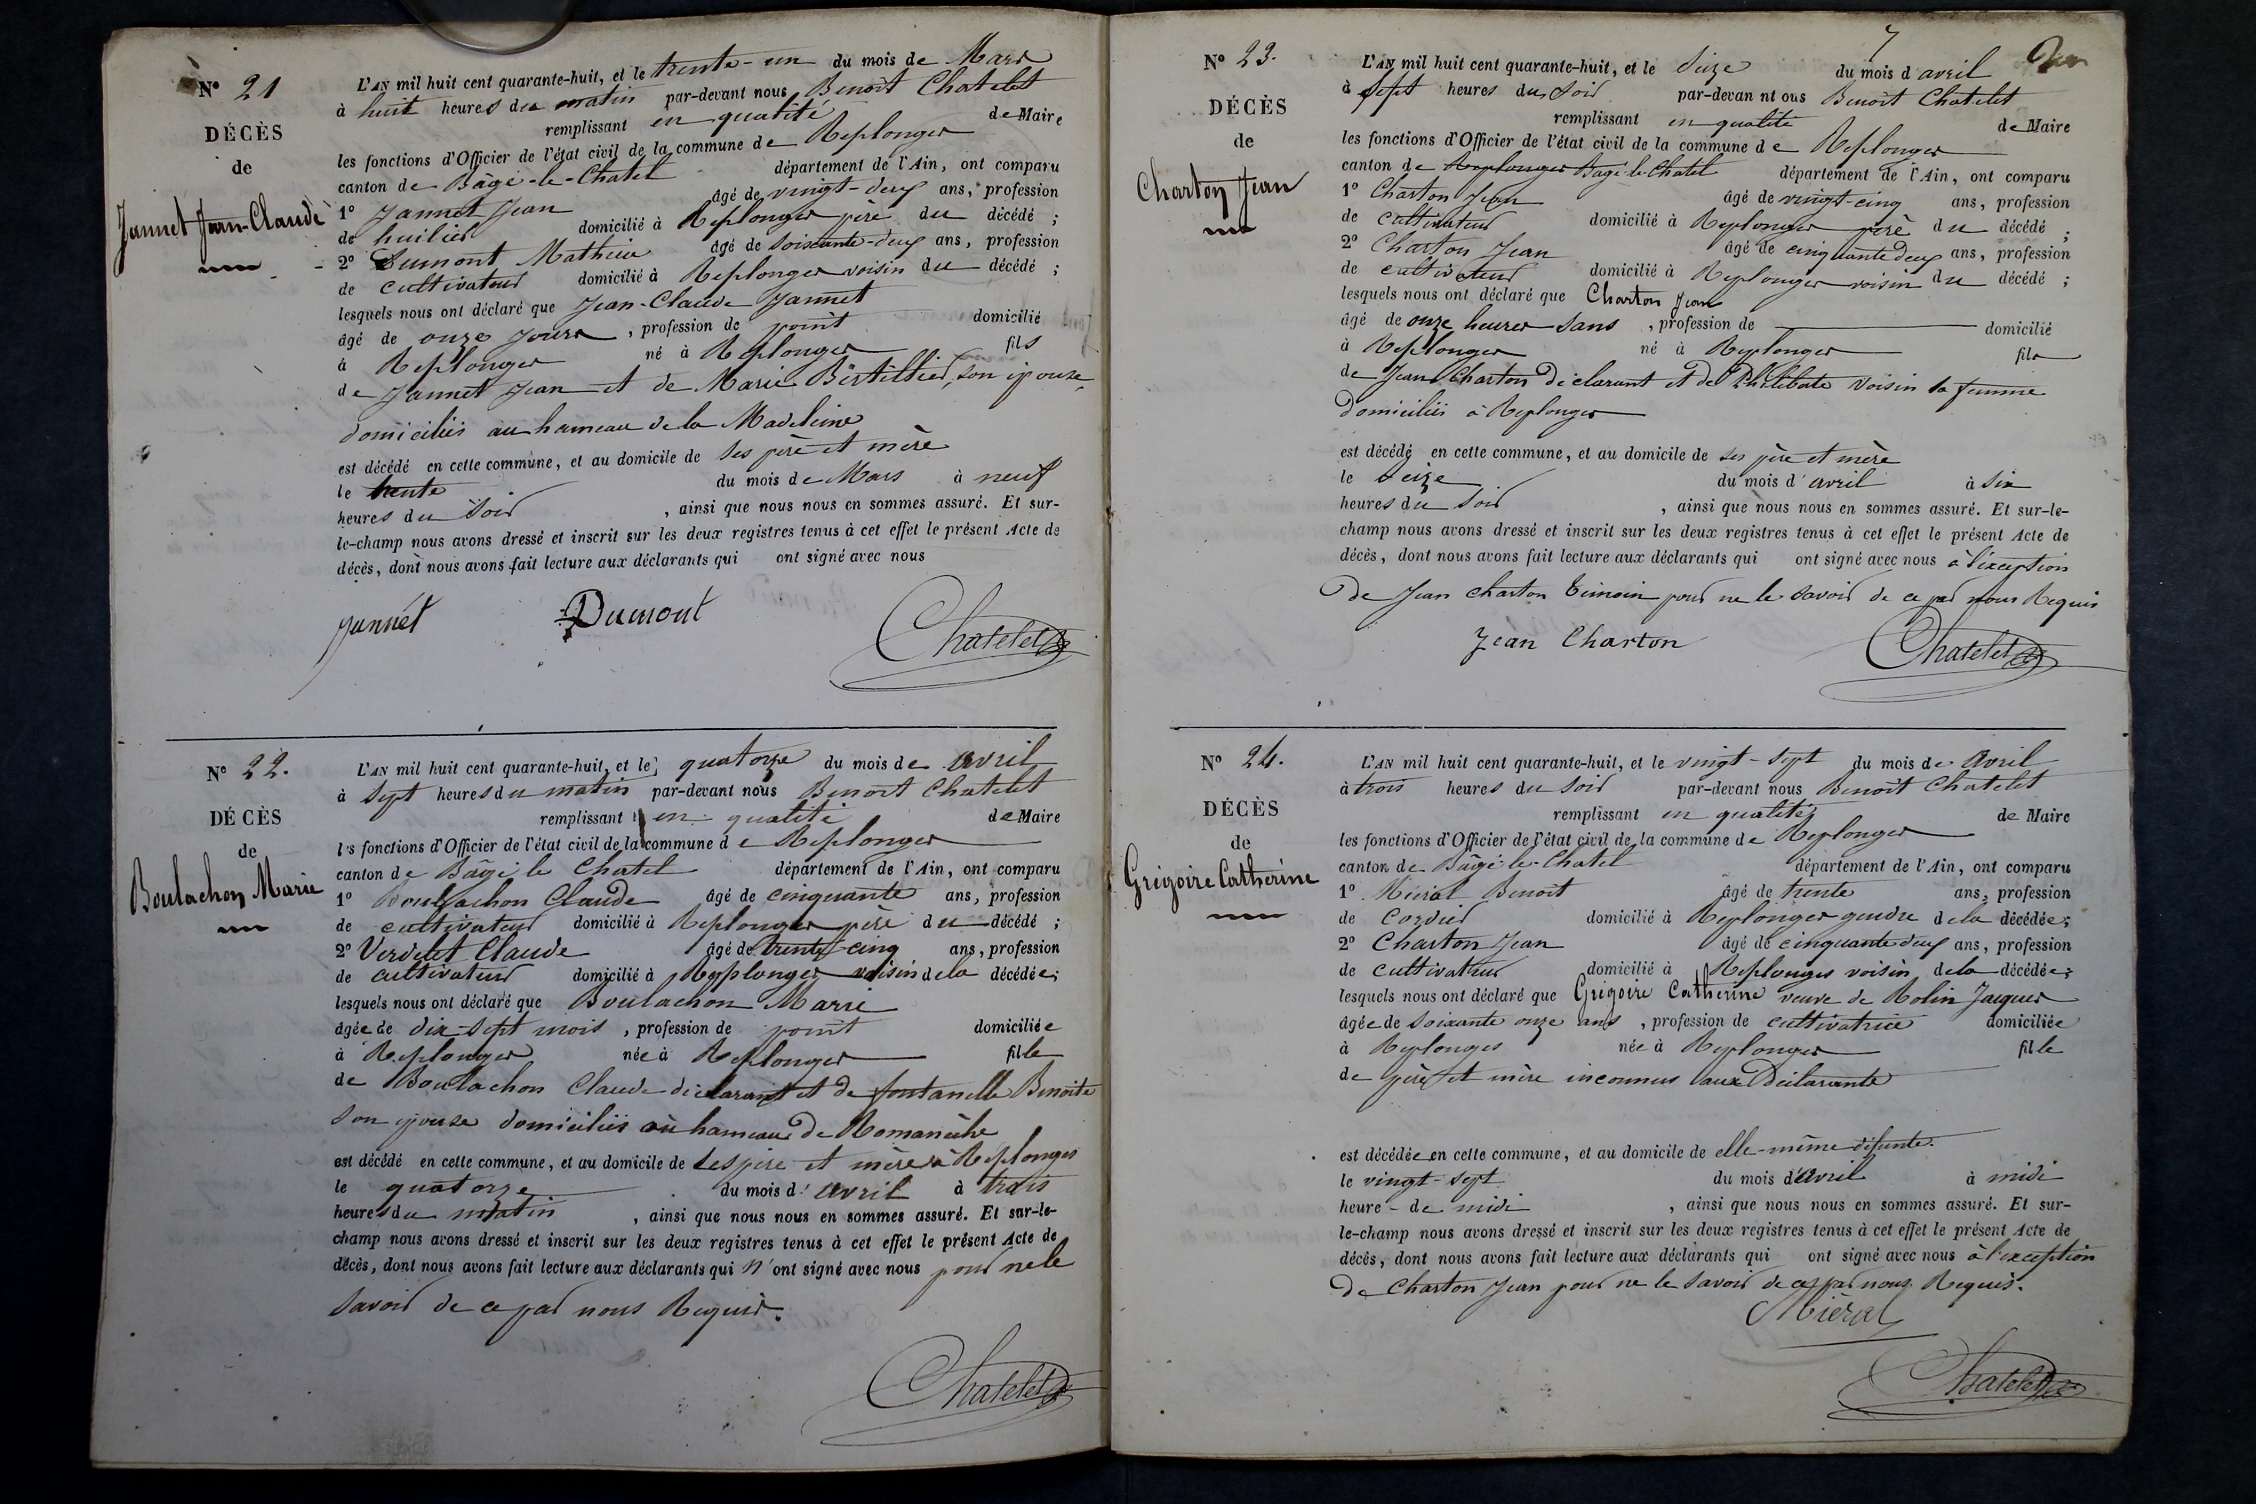 N° 21
DÉCÈS
de
Jannet Jean-Claude
L'AN mil huit cent quarante-huit, et le trente-un du mois de Mars
à huit heures du matin par-devant nous Benoît Chatelet
remplissant en qualité de Maire
les fonctions d'Officier de l'état civil de la commune de Replonges
canton de Bâgé-le-Chatel département de l'Ain, ont comparu
1° Jannet Jean âgé de vingt-deux ans, profession
de huilier domicilié à Replonges père du décédé ;
2° Dumont Mathieu âgé de soixante-deux ans, profession
de cultivateur domicilié à Replonges voisin du décédé ;
lesquels nous ont déclaré que Jean-Claude Jannet
âgé de onze jours , profession de point domicilié
à Replonges né à Replonges fils
de Jannet Jean et de Marie Bertillier, son épouse
domiciliés au hameau de la Madeleine
est décédé en cette commune, et au domicile de ses père et mère
le trente du mois de Mars à neuf
heures du soir , ainsi que nous nous en sommes assuré. Et sur-
le-champ nous avons dressé et inscrit sur les deux registres tenus à cet effet le présent Acte de
décès, dont nous avons fait lecture aux déclarants qui ont signé avec nous
Jannet Dumont Chatelet
N° 22.
DÉCÈS
de
Boulachon Marie
L'AN mil huit cent quarante-huit, et le quatorze du mois de avril
à sept heures du matin par-devant nous Benoît Chatelet
remplissant en qualité de Maire
les fonctions d'Officier de l'état civil de la commune de Replonges
canton de Bâgé le Chatel département de l'Ain, ont comparu
1° Boulachon Claude âgé de cinquante ans, profession
de cultivateur domicilié à Replonges père du décédé ;
2° Verdelet Claude âgé de trente-cinq ans, profession
de cultivateur domicilié à Replonges voisin de la décédée;
lesquels nous ont déclaré que Boulachon Marie
âgée de dix-sept mois , profession de point domiciliée
à Replonges née à Replonges fille
de Boulachon Claude déclarant et de fontanelle Benoite
son épouse domiciliés au hameau de Romanèche
est décédé en cette commune, et au domicile de ses père et mère à Replonges
le quatorze du mois d' avril à trois
heures du matin , ainsi que nous nous en sommes assuré. Et sur-le-
champ nous avons dressé et inscrit sur les deux registres tenus à cet effet le présent Acte de
décès, dont nous avons fait lecture aux déclarants qui n'ont signé avec nous pour ne le
savoir de ce par nous Requis.
Chatelet
7
N° 23.
DÉCÈS
de
Charton Jean
L'AN mil huit cent quarante-huit, et le seize du mois d'avril
à sept heures du soir par-devan nt ous Benoît Chatelet
remplissant en qualité de Maire
les fonctions d'Officier de l'état civil de la commune de Replonges
canton de Replonges Bagé-le-Chatel département de l'Ain, ont comparu
1° Charton Jean âgé de vingt-cinq ans, profession
de cultivateur domicilié à Replonges père du décédé ;
2° Charton Jean âgé de cinquante deux ans, profession
de cultivateur domicilié à Replonges voisin du décédé ;
lesquels nous ont déclaré que Charton Jean
âgé de onze heures sans , profession de domicilié
à Replonges né à Replonges fils
de Jean Charton déclarant et de Philiberte Voisin sa femme
domiciliés à Replonges
est décédé en cette commune, et au domicile de ses père et mère
le seize du mois d'avril à six
heures du soir , ainsi que nous nous en sommes assuré. Et sur-le-
champ nous avons dressé et inscrit sur les deux registres tenus à cet effet le présent Acte de
décès, dont nous avons fait lecture aux déclarants qui ont signé avec nous à l'exception
de Jean Charton témoin pour ne le savoir de ce par nous Requis
Jean Charton Chatelet
N° 24.
DÉCÈS
de
Grégoire Catherine
L'AN mil huit cent quarante-huit, et le vingt-sept du mois de Avril
à trois heures du soir par-devant nous Benoît Chatelet
remplissant en qualité de Maire
les fonctions d'Officier de l'état civil de la commune de Replonges
canton de Bâgé-le-Chatel département de l'Ain, ont comparu
1° Miéral Benoit âgé de trente ans, profession
de Cordier domicilié à Replonges gendre de la décédée;
2° Charton Jean âgé de cinquante deux ans, profession
de cultivateur domicilié à Replonges voisin de la décédée;
lesquels nous ont déclaré que Grégoire Catherine veuve de Rolin Jacques
âgée de soixante onze ans , profession de cultivatrice domiciliée
à Replonges née à Replonges fille
de père et mère inconnus aux Déclarants
est décédée en cette commune, et au domicile de elle-même défunte.
le vingt-sept du mois d'Avril à midi
heure de midi , ainsi que nous nous en sommes assuré. Et sur-
le-champ nous avons dressé et inscrit sur les deux registres tenus à cet effet le présent Acte de
décès, dont nous avons fait lecture aux déclarants qui ont signé avec nous à l'exception
de Charton Jean pour ne le savoir de ce par nous Requis.
Miéral
Chatelet